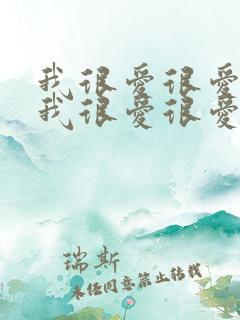 我很爱很爱
我很爱很爱
瑞斯
未经同意禁止转载